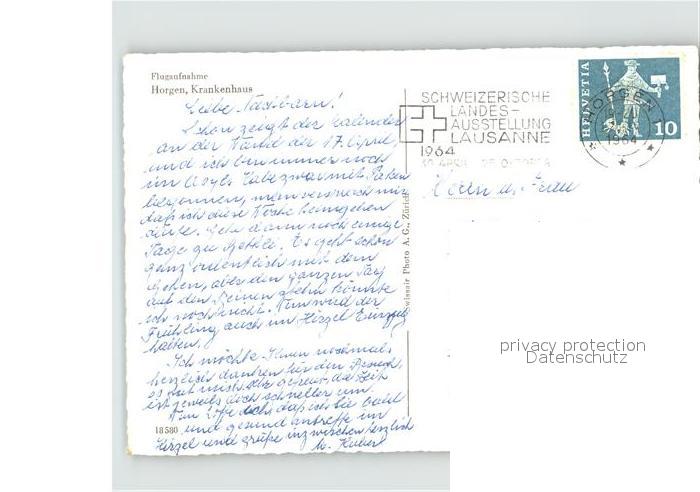 Flugaufnahme
Horgen, Krankenhaus
Liebe Nachbarn!
Schon zeigt der Kalender
an der Wand der 17. April,
und ich bin immer noch
im Asyl. Habe zwar mit Packen
begonnen, man versprach mir
daß ich diese Woche heimgehen
dürfe. Gehe dann noch einige
Tage zu Bethli. Es geht schon
ganz ordentlich mit dem
Gehen, aber den ganzen Tag
auf den Beinen stehn könnte
ich noch nicht. Nun wird der
Frühling auch im Hirzel Einzug
halten.
Ich möchte Ihnen nochmals
herzlich danken für den Besuch,
es hat mich sehr gefreut, die Zeit
ist jeweils doch schneller um.
Nun hoffe ich, daß ich Sie bald
und gesund antreffe im
Hirzel und grüße inzwischen herzlich
M. Huber
18580
Swissair Photo A. G., Zürich
SCHWEIZERISCHE
LANDES-
AUSSTELLUNG
LAUSANNE
1964
30. APRIL - 25. OKTOBER
HORGEN
1964
HELVETIA
10
Herrn u. Frau
privacy protection
Datenschutz